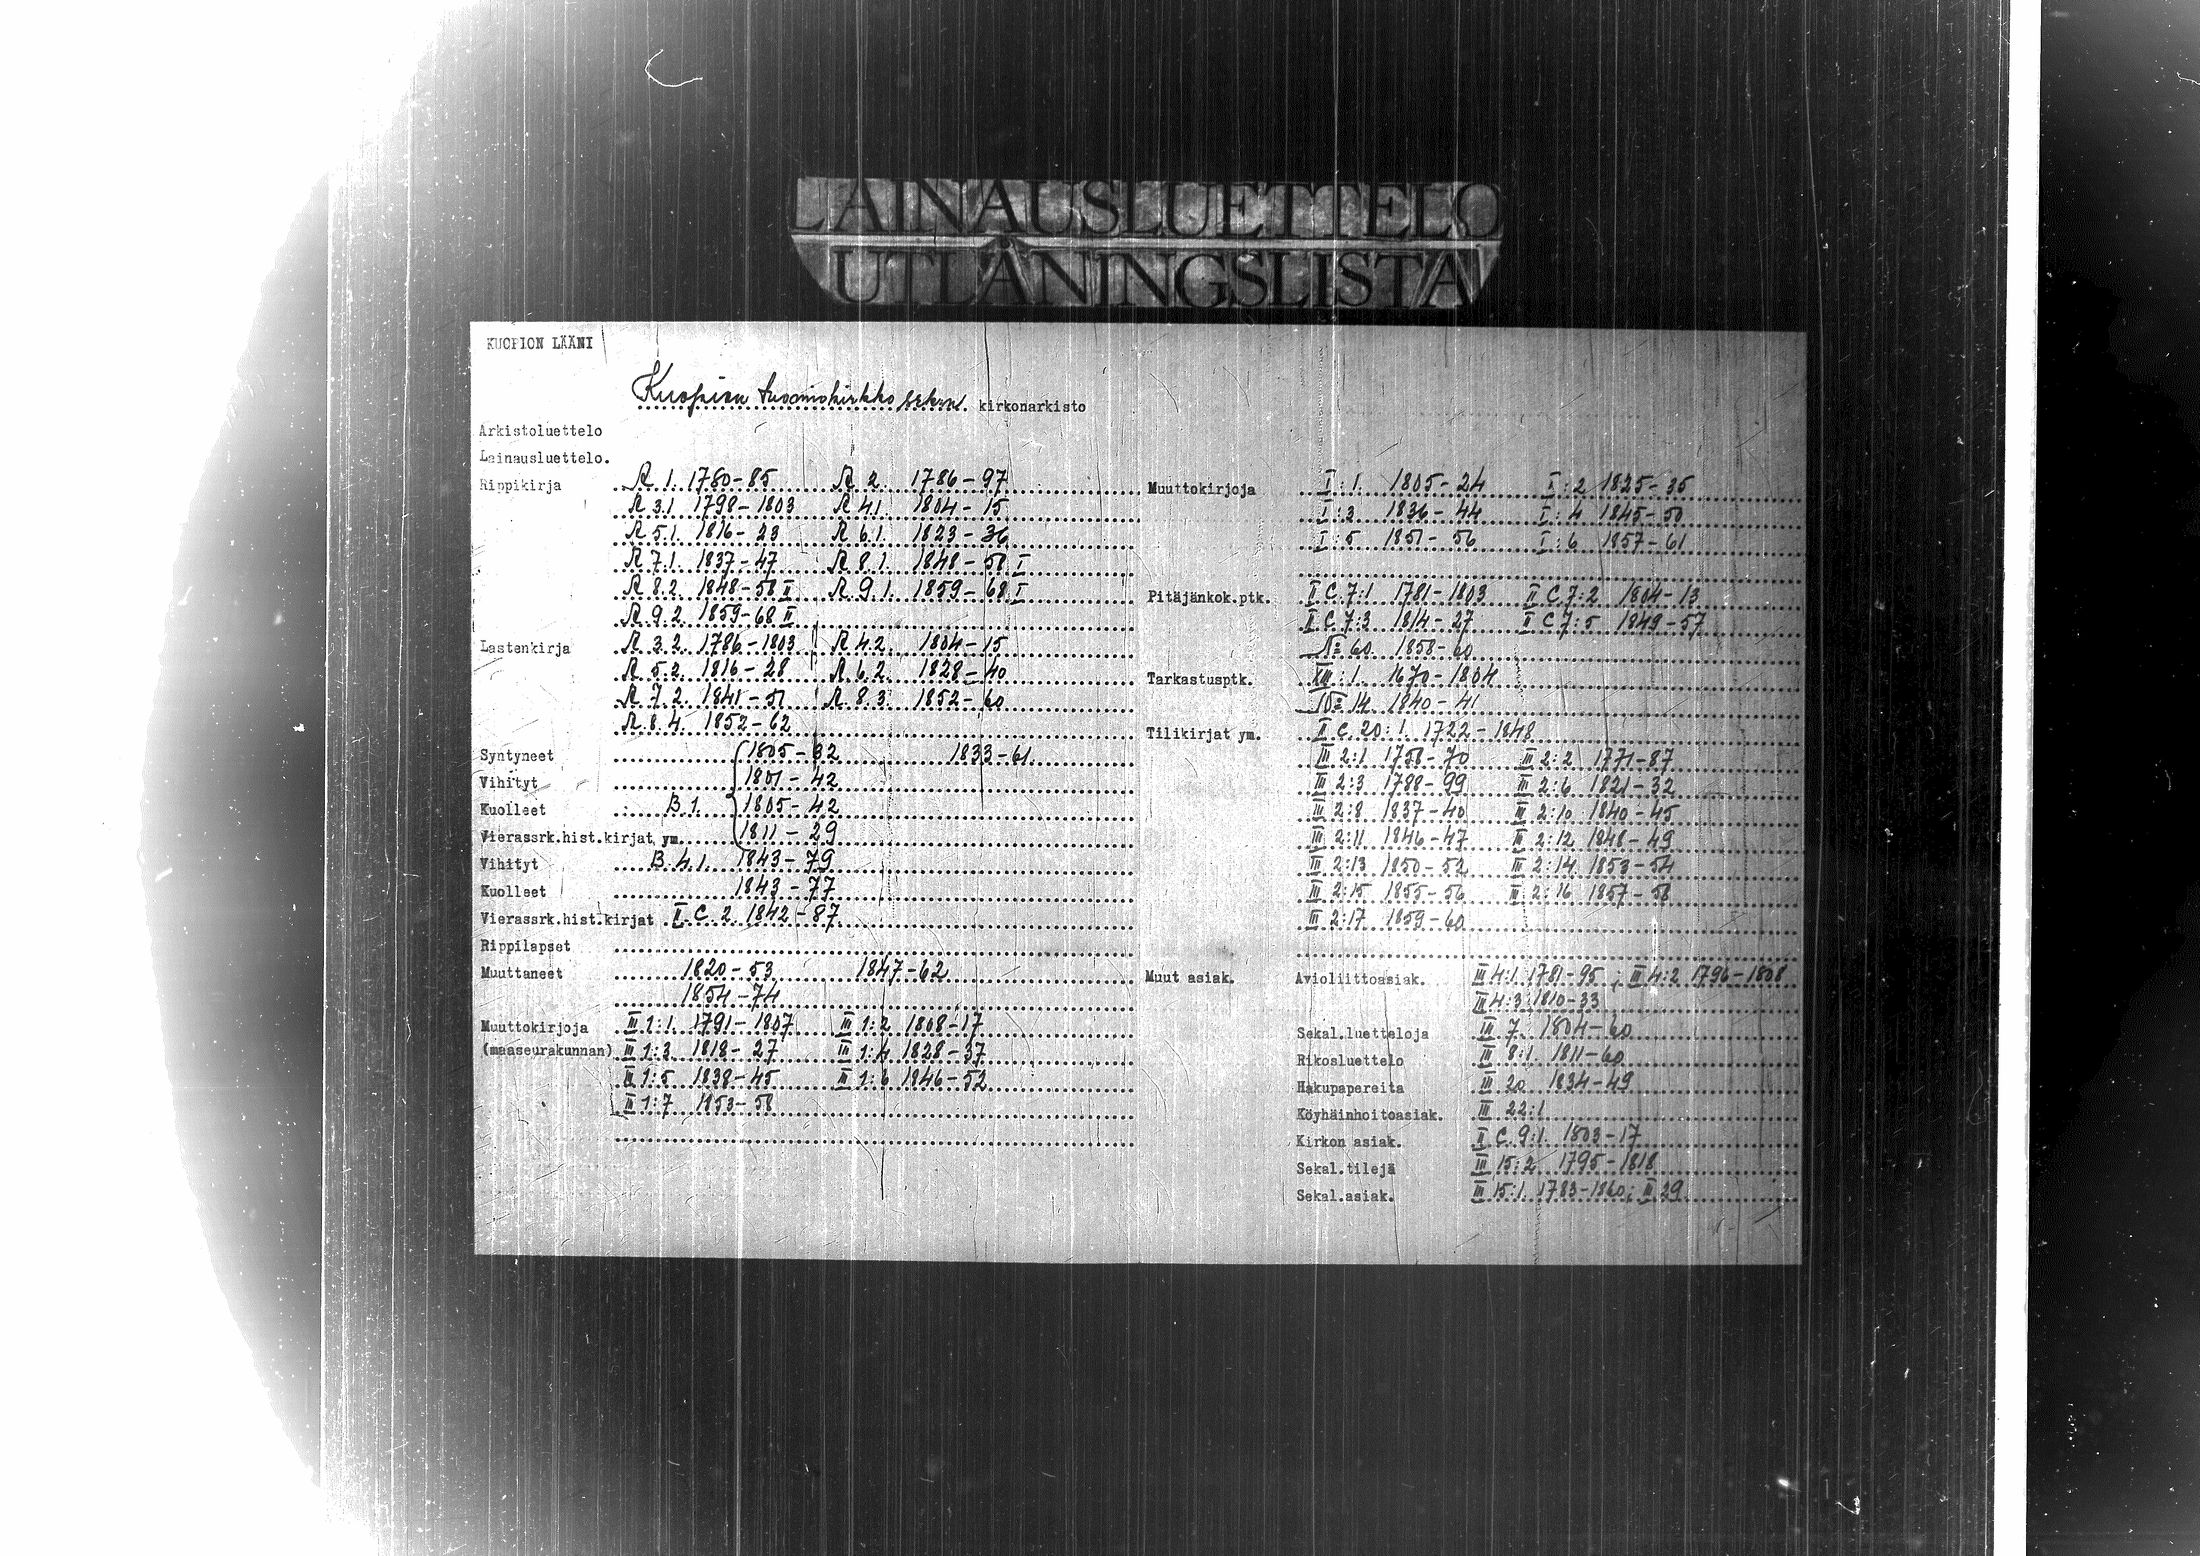 LAINAUSLUETTELO
UTLÅNINGSLISTA
KUOPION LÄÄNI
Kuopion tuomiokirkko srkn. kirkonarkisto
Arkistoluettelo
Lainausluettelo.
Rippikirja R 1. 1780-85 R 2. 1786-97
R 3.1 1798-1803 R 4.1. 1804-15
R 5.1. 1816-23 R 6.1. 1823-36
R 7.1. 1837-47 R 8.1. 1848-58 I
R 8.2. 1848-58 II R 9.1. 1859-68 I
R 9.2 1859-68 II
Lastenkirja R 3.2. 1786-1803 R 4.2. 1804-15
R 5.2. 1816-28 R 6.2. 1828-40
R 7.2. 1841-51 R 8.3. 1852-60
R 8.4. 1852-62
Syntyneet 1805-32 1833-61
Vihityt 1801-42
Kuolleet B.1. 1805-42
Vierassrk.hist.kirjat ym. 1811-29
Vihityt B.4.1. 1843-79
Kuolleet 1843-77
Vierassrk.hist.kirjat II C 2. 1842-87
Rippilapset
Muuttaneet 1820-53 1847-62
1854-74
Muuttokirjoja III 1:1. 1791-1807 III 1:2 1808-17
(maaseurakunnan) III 1:3. 1818-27 III 1:4 1828-37
III 1:5 1838-45 III 1:6 1846-52
III 1:7 1853-58
Muuttokirjoja I:1. 1805-24 I:2 1825-35
I:3 1836-44 I:4 1845-50
I:5 1851-56 I:6 1857-61
Pitäjänkok.ptk. II C 7:1 1781-1803 II C 7:2 1804-13
II C 7:3 1814-27 II C 7:5 1849-57
No 60 1858-60
Tarkastusptk. XIII:1. 1670-1804
No 14 1840-41
Tilikirjat ym. II C 20:1. 1722-1848
III 2:1 1758-70 III 2:2 1771-87
III 2:3 1788-99 III 2:6 1821-32
III 2:8 1837-40 III 2:10 1840-45
III 2:11 1846-47 III 2:12 1848-49
III 2:13 1850-52 III 2:14 1853-54
III 2:15 1855-56 III 2:16 1857-58
III 2:17 1859-60
Muut asiak. Avioliittoasiak. III 4:1. 1781-95; III 4:2 1796-1808
III 4:3 1810-33
Sekal.luetteloja III 7. 1804-60
Rikosluettelo III 8:1. 1811-60
Hakupapereita III 20 1834-49
Köyhäinhoitoasiak. III 22:1
Kirkon asiak. II C 9:1. 1803-17
Sekal.tilejä III 15:2 1795-1818
Sekal.asiak. III 15:1. 1783-1860; III 29